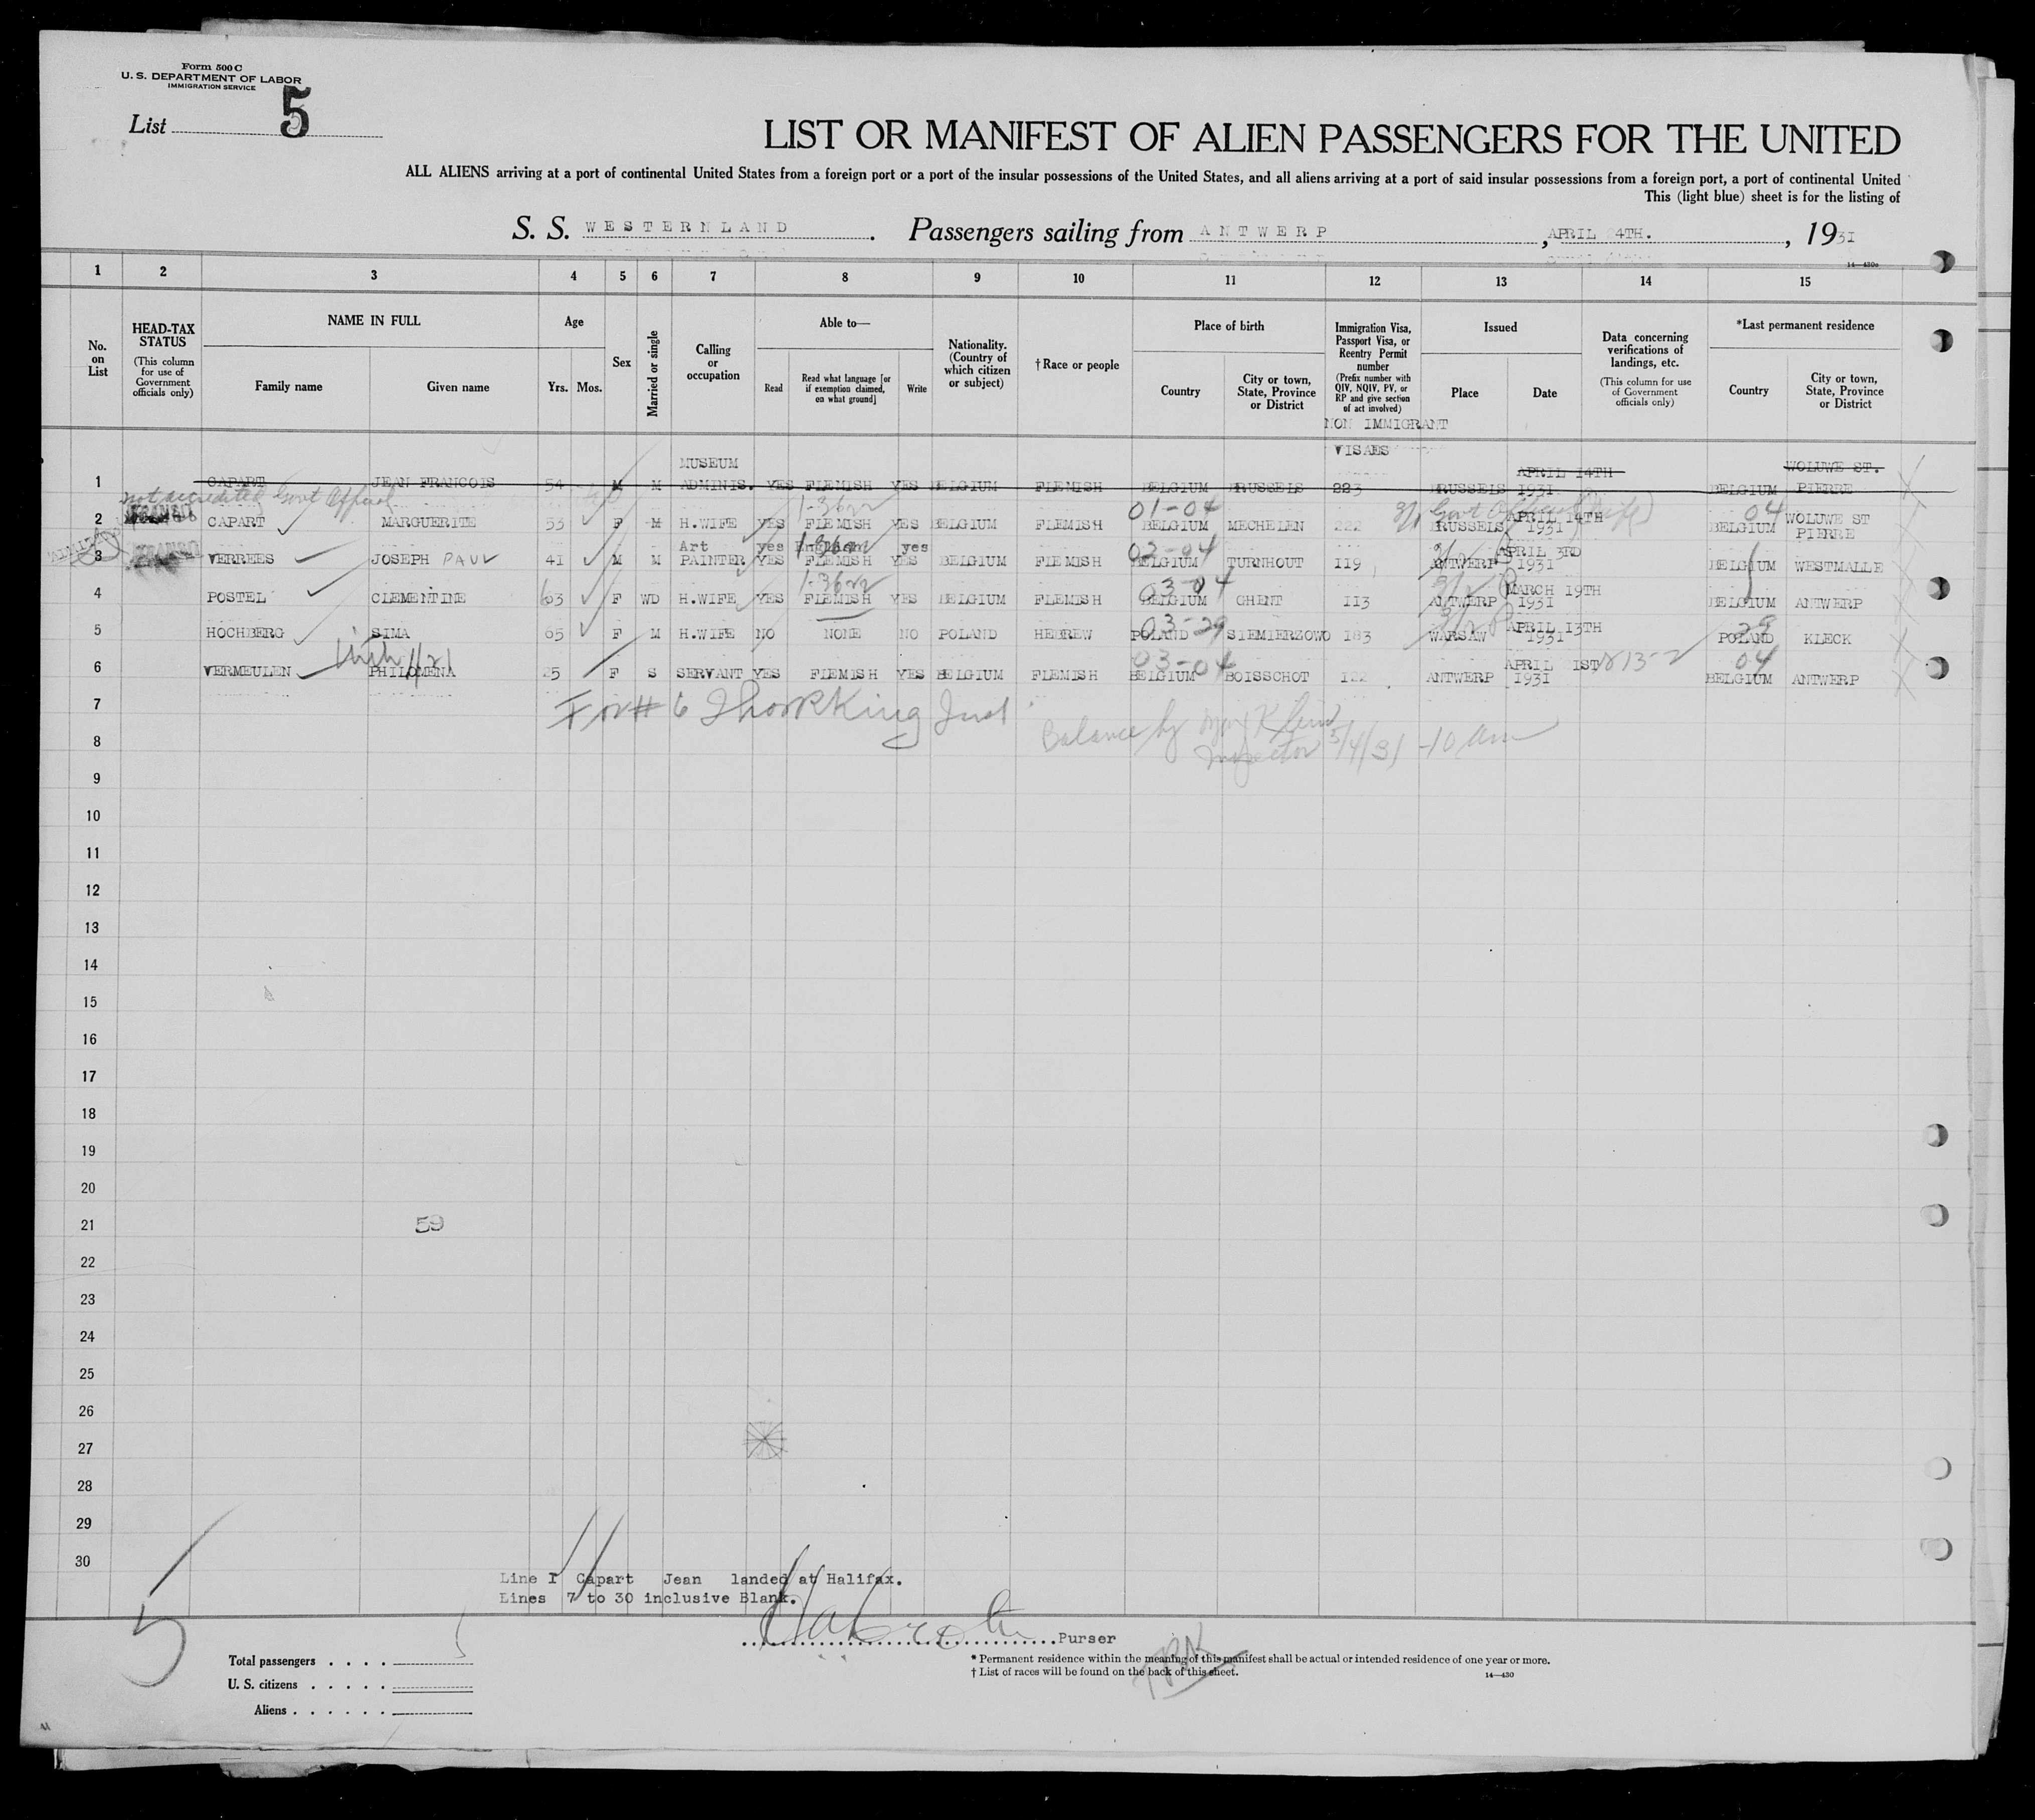 Form 500 C
U. S. DEPARTMENT OF LABOR
IMMIGRATION SERVICE
List 5
LIST OR MANIFEST OF ALIEN PASSENGERS FOR THE UNITED
ALL ALIENS arriving at a port of continental United States from a foreign port or a port of the insular possessions of the United States, and all aliens arriving at a port of said insular possessions from a foreign port, a port of continental United
This (light blue) sheet is for the listing of
S. S. WESTERNLAND. Passengers sailing from ANTWERP, APRIL 24TH., 1931
14—430a
1 2 3 4 5 6 7 8 9 10 11 12 13 14 15
No. on List
HEAD-TAX STATUS (This column for use of Government officials only)
NAME IN FULL
Family name Given name
Age
Yrs. Mos.
Sex
Married or single
Calling or occupation
Able to—
Read
Read what language [or if exemption claimed, on what ground]
Write
Nationality. (Country of which citizen or subject)
†Race or people
Place of birth
Country
City or town, State, Province or District
Immigration Visa, Passport Visa, or Reentry Permit number (Prefix number with QIV, NQIV, PV, or RP and give section of act involved)
Issued
Place Date
Data concerning verifications of landings, etc. (This column for use of Government officials only)
*Last permanent residence
Country
City or town, State, Province or District
NON IMMIGRANT
VISAES
MUSEUM APRIL 14TH WOLUWE ST.
1 CAPART JEAN FRANCOIS 54 M M ADMINIS. YES FLEMISH YES BELGIUM FLEMISH BELGIUM BRUSSELS 223 BRUSSELS 1931 BELGIUM PIERRE
not accredited Govt Official 1-3622 01-04 Govt 04
TRANSIT APRIL 14TH WOLUWE ST
2 CAPART MARGUERITE 53 F M H.WIFE YES FLEMISH YES BELGIUM FLEMISH BELGIUM MECHELEN 222 BRUSSELS 1931 BELGIUM PIERRE
TRANSIT Art yes English yes 03-04 APRIL 3RD
3 VERREES JOSEPH PAUL 41 M M PAINTER YES FLEMISH YES BELGIUM FLEMISH BELGIUM TURNHOUT 119 ANTWERP 1931 BELGIUM WESTMALLE
1-3622 03-04 MARCH 19TH
4 POSTEL CLEMENTINE 63 F WD H.WIFE YES FLEMISH YES BELGIUM FLEMISH BELGIUM GHENT 113 ANTWERP 1931 BELGIUM ANTWERP
03-29 APRIL 13TH 29
5 HOCHBERG SIMA 65 F M H.WIFE NO NONE NO POLAND HEBREW POLAND SIEMIERZOWO 183 WARSAW 1931 POLAND KLECK
03-04 APRIL 1ST 04
6 VERMEULEN PHILOMENA 25 F S SERVANT YES FLEMISH YES BELGIUM FLEMISH BELGIUM BOISSCHOT 122 ANTWERP 1931 BELGIUM ANTWERP
7
For #6
Balance by
8
Inspector 5/4/31 -10 am
9
10
11
12
13
14
15
16
17
18
19
20
21 59
22
23
24
25
26
27
28
29
30
Line I Capart Jean landed at Halifax.
Lines 7 to 30 inclusive Blank.
5
Purser
Total passengers . . . . 5
U. S. citizens . . . . .
Aliens . . . . . .
* Permanent residence within the meaning of this manifest shall be actual or intended residence of one year or more.
† List of races will be found on the back of this sheet.
14—430